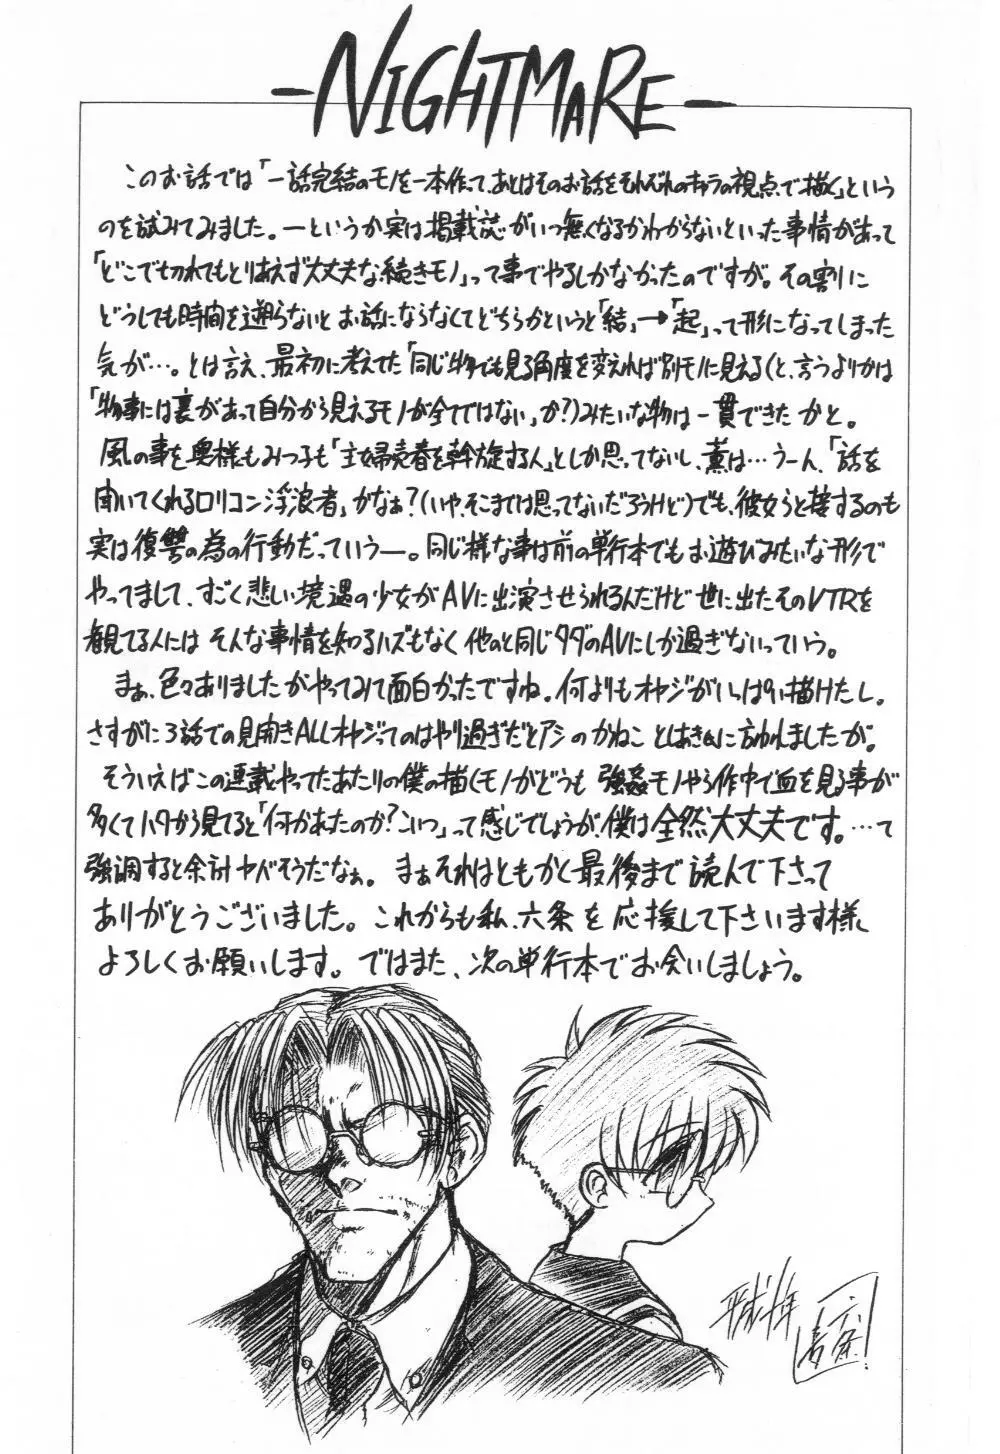 -NIGHTMARE-
このお話では「一話完結のモノを一本作って、あとはそのお話をそれぞれのキャラの視点で描く」という
のを試みてみました。ーというか実は掲載誌がいつ無くなるかわからないといった事情があって
「どこで切れてもとりあえず大丈夫な続きモノ」って事でやるしかなかったのですが。その割に
どうしても時間を遡らないとお話にならなくてどちらかというと「結」→「起」って形になってしまった
気が…。とは言え、最初に考えてた「同じ物でも見る角度を変えれば別モノに見える(と、言うよりかは
「物事には裏があって自分から見えるモノが全てではない」か?)みたいな物は一貫できたかと。
風の事を奥様もみつ子も「主婦売春を斡旋する人」としか思ってないし、薫は…うーん、「話を
聞いてくれるロリコン浮浪者」かなぁ?(いや、そこまでは思ってないだろうけど)でも、彼女らと接するのも
実は復讐の為の行動だっていうー。同じ様な事は前の単行本でもお遊びみたいな形で
やってまして、すごく悲しい境遇の少女がAVに出演させられるんだけど世に出たそのVTRを
観てる人にはそんな事情を知るハズもなく他のと同じタダのAVにしか過ぎないっていう。
まぁ、色々ありましたがやってみて面白かったですね。何よりもオヤジがいっぱい描けたし。
さすがに3話での見開きALLオヤジってのはやり過ぎだとアシのかねこ としあきさんに言われましたが。
そういえばこの連載やってたあたりの僕の描くモノがどうも強姦モノやら作中で血を見る事が
多くてハタから見てると「何かあったのか?こいつ」って感じでしょうが、僕は全然大丈夫です。…て
強調すると余計ヤバそうだなぁ。まぁそれはともかく最後まで読んで下さって
ありがとうございました。これからも私、六条を応援して下さいます様、
よろしくお願いします。ではまた、次の単行本でお会いしましょう。
平成十年